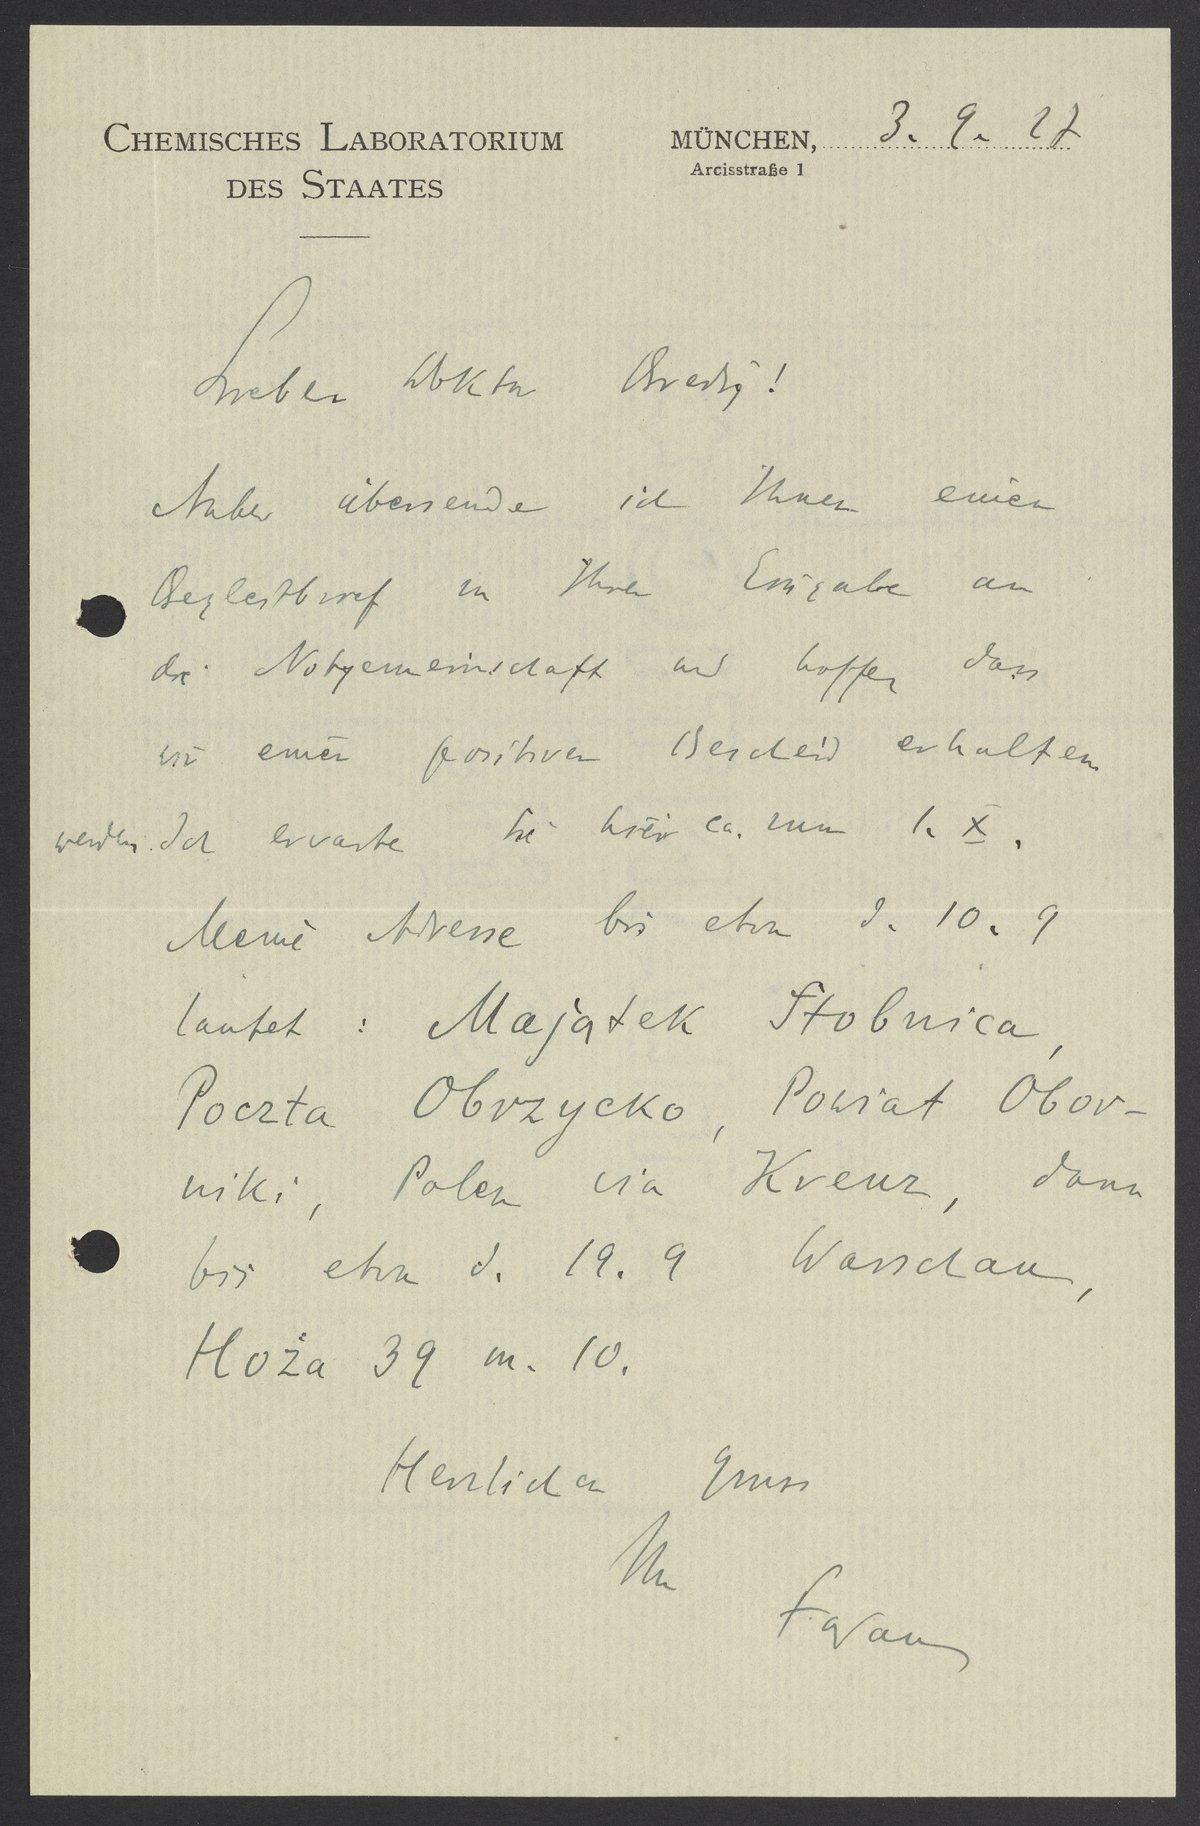 CHEMISCHES LABORATORIUM
DES STAATES
MÜNCHEN, 3. 9. 27
Arcisstraße 1
Lieber Doktor Bredig!
Anbei übersende ich Ihnen einen
Begleitbrief zu Ihrer Eingabe an
die Notgemeinschaft und hoffe, dass
wir einen positiven Bescheid erhalten
werden. Ich erwarte Sie hier ca. zum 1. X.
Meine Adresse bis etwa d. 10. 9
lautet : Majątek Stobnica,
Poczta Obrzycko, Powiat Obor-
niki, Polen via Kreuz, dann
bis etwa d. 19. 9 Warschau,
Hoża 39 m. 10.
Herzlichen Gruss
Ihr
Fajans